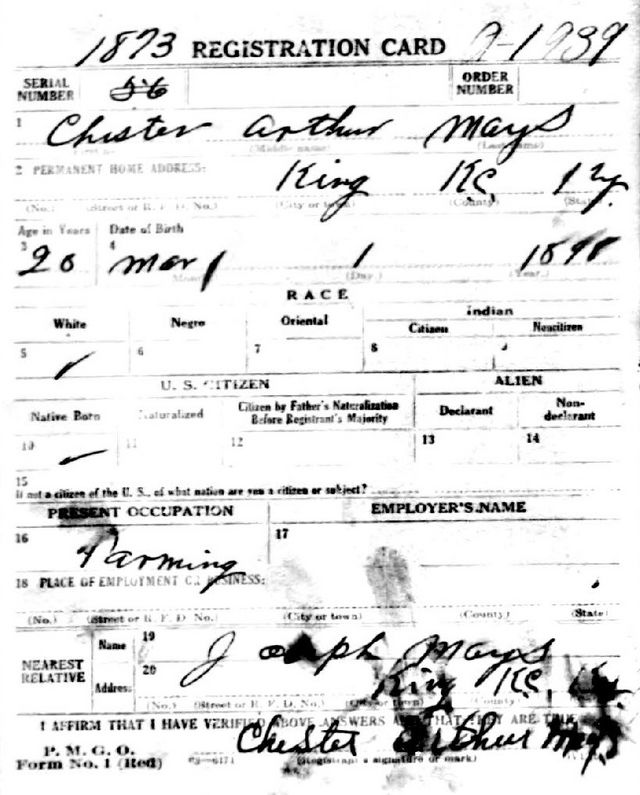 1873 REGISTRATION CARD A-1939
SERIAL NUMBER 56 ORDER NUMBER
1 Chester Arthur Mays
(Middle name) (Last name)
2 PERMANENT HOME ADDRESS: King Kc. Ky.
(No.) (Street or R. F. D. No.) (City or town) (County) (State)
Age in Years Date of Birth
3 20 4 Mar 1 1 1898
(Day.) (Year.)
RACE
White Negro Oriental Indian
Citizen Noncitizen
5 ✓ 6 7 8
U. S. CITIZEN ALIEN
Native Born Naturalized Citizen by Father's Naturalization Before Registrant's Majority Declarant Non-declarant
10 ✓ 11 12 13 14
15
If not a citizen of the U. S., of what nation are you a citizen or subject?
PRESENT OCCUPATION EMPLOYER'S NAME
16 Farming 17
18 PLACE OF EMPLOYMENT OR BUSINESS:
(No.) (Street or R. F. D. No.) (City or town) (County) (State)
NEAREST RELATIVE Name 19 Joseph Mays
Address 20 King Kc. Ky.
(No.) (Street or R. F. D. No.) (City or town) (County)
I AFFIRM THAT I HAVE VERIFIED ABOVE ANSWERS AND THAT THEY ARE TRUE
P. M. G. O. Chester Arthur Mays
Form No. 1 (Red) 03-6171 (Registrant's signature or mark)